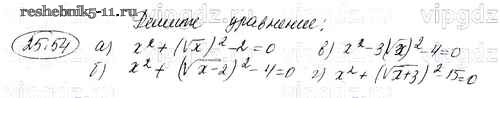 reshebnik5-11.ru
Решите уравнение:
25.54 а) x² + (√x)² - 2 = 0 в) x² - 3(√x)² - 4 = 0
б) x² + (√x-2)² - 4 = 0 г) x² + (√x+3)² - 15 = 0